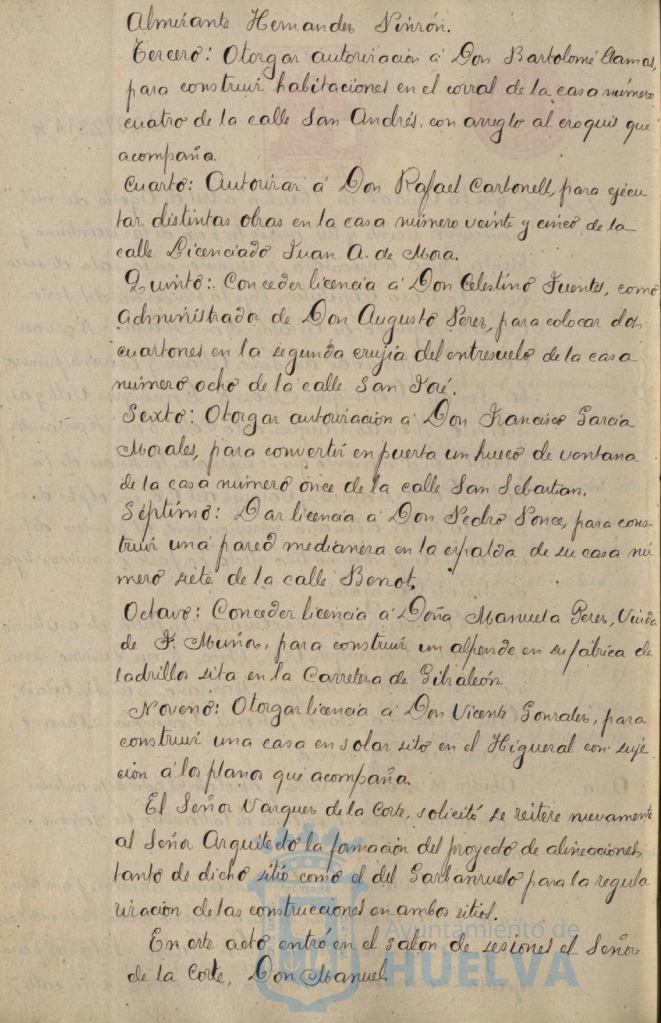 Almirante Hernandez Pinzón.
Tercero: Otorgar autorización á Don Bartolomé Llamas,
para construir habitaciones en el corral de la casa número
cuatro de la calle San Andrés, con arreglo al croquis que
acompaña.
Cuarto: Autorizar á Don Rafael Carbonell, para ejecu-
tar distintas obras en la casa número veinte y cinco de la
calle Licenciado Juan A. de Mora.
Quinto: Conceder licencia á Don Celestino Fuentes, como
administrador de Don Augusto Perez, para colocar dos
cuartones en la segunda crujia del entresuelo de la casa
número ocho de la calle San José.
Sexto: Otorgar autorización á Don Francisco Garcia
Morales, para convertir en puerta un hueco de ventana
de la casa número once de la calle San Sebastian.
Séptimo: Dar licencia á Don Pedro Ponce, para cons-
truir una pared medianera en la espalda de su casa nú
mero siete de la calle Benot.
Octavo: Conceder licencia á Doña Manuela Perez, Viuda
de F. Muñoz, para construir un alpende en su fábrica de
ladrillos sita en la Carretera de Gibraleón
Noveno: Otorgar licencia á Don Vicente Gonzalez, para
construir una casa en solar sito en el Higueral con suje
ción á los planos que acompaña.
El Señor Vazquez de la Corte, solicitó se reitere nuevamente
al Señor Arquitecto la formación del proyecto de alineaciones,
tanto de dicho sitio como el del Garbanzuelo para la regula
rización de las construcciones en ambos sitios.
En este acto entró en el salon de sesiones el Señor
de la Corte, Don Manuel.
Ayuntamiento de
HUELVA